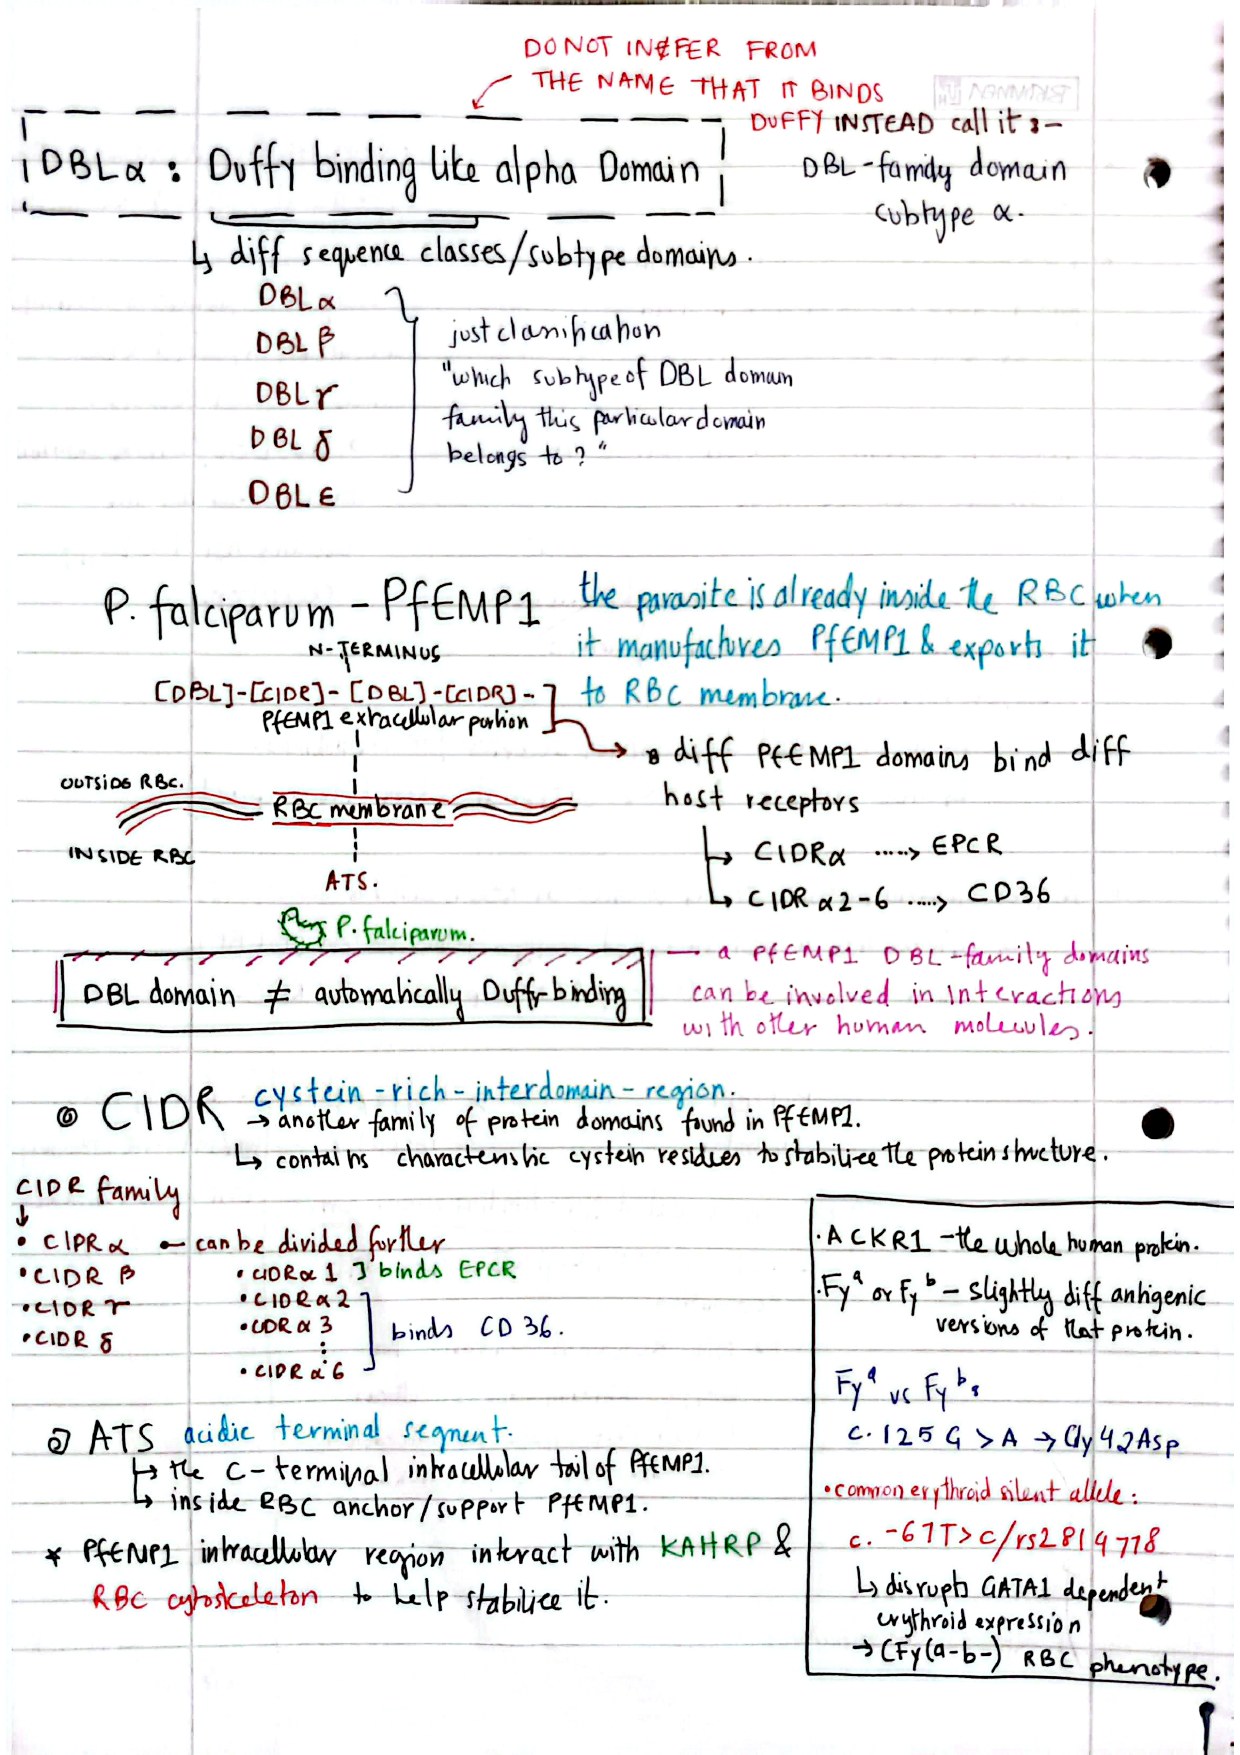 DO NOT INFER FROM
THE NAME THAT IT BINDS
DUFFY INSTEAD call it :-
DBL-family domain
subtype α.
DBLα : Duffy binding like alpha Domain
↳ diff sequence classes/subtype domains.
DBLα
DBL β
DBL γ
DBL δ
DBL ε
just classification
"which subtype of DBL domain
family this particular domain
belongs to ?"
P. falciparum - PfEMP1
the parasite is already inside the RBC when
it manufactures PfEMP1 & exports it
to RBC membrane.
N-TERMINUS
[DBL]-[CIDR]-[DBL]-[CIDR]-
PfEMP1 extracellular portion
OUTSIDE RBC.
RBC membrane
INSIDE RBC
ATS.
diff PfEMP1 domains bind diff
host receptors
↳ CIDRα .....> EPCR
↳ CIDR α2-6 .....> CD36
P. falciparum.
DBL domain ≠ automatically Duffy-binding
— a PfEMP1 DBL-family domains
can be involved in interactions
with other human molecules.
CIDR cystein-rich-interdomain-region.
→ another family of protein domains found in PfEMP1.
↳ contains characteristic cystein residues to stabilize the protein structure.
CIDR family
↓
• CIDR α — can be divided further
• CIDR β
• CIDR γ
• CIDR δ
• CIDRα 1 ] binds EPCR
• CIDR α2
• CIDR α 3
⋮
• CIDR α 6
binds CD 36.
ATS acidic terminal segment.
↳ the C-terminal intracellular tail of PfEMP1.
↳ inside RBC anchor/support PfEMP1.
* PfEMP1 intracellular region interact with KAHRP &
RBC cytoskeleton to help stabilize it.
• ACKR1 - the whole human protein.
• Fyᵃ or Fyᵇ - slightly diff antigenic
versions of that protein.
Fyᵃ vs Fyᵇ:
c. 125 G > A → Gly 42 Asp
• common erythroid silent allele:
c. -67T>C/rs2814778
↳ disrupts GATA1 dependent
erythroid expression
→ (Fy(a-b-) RBC phenotype.